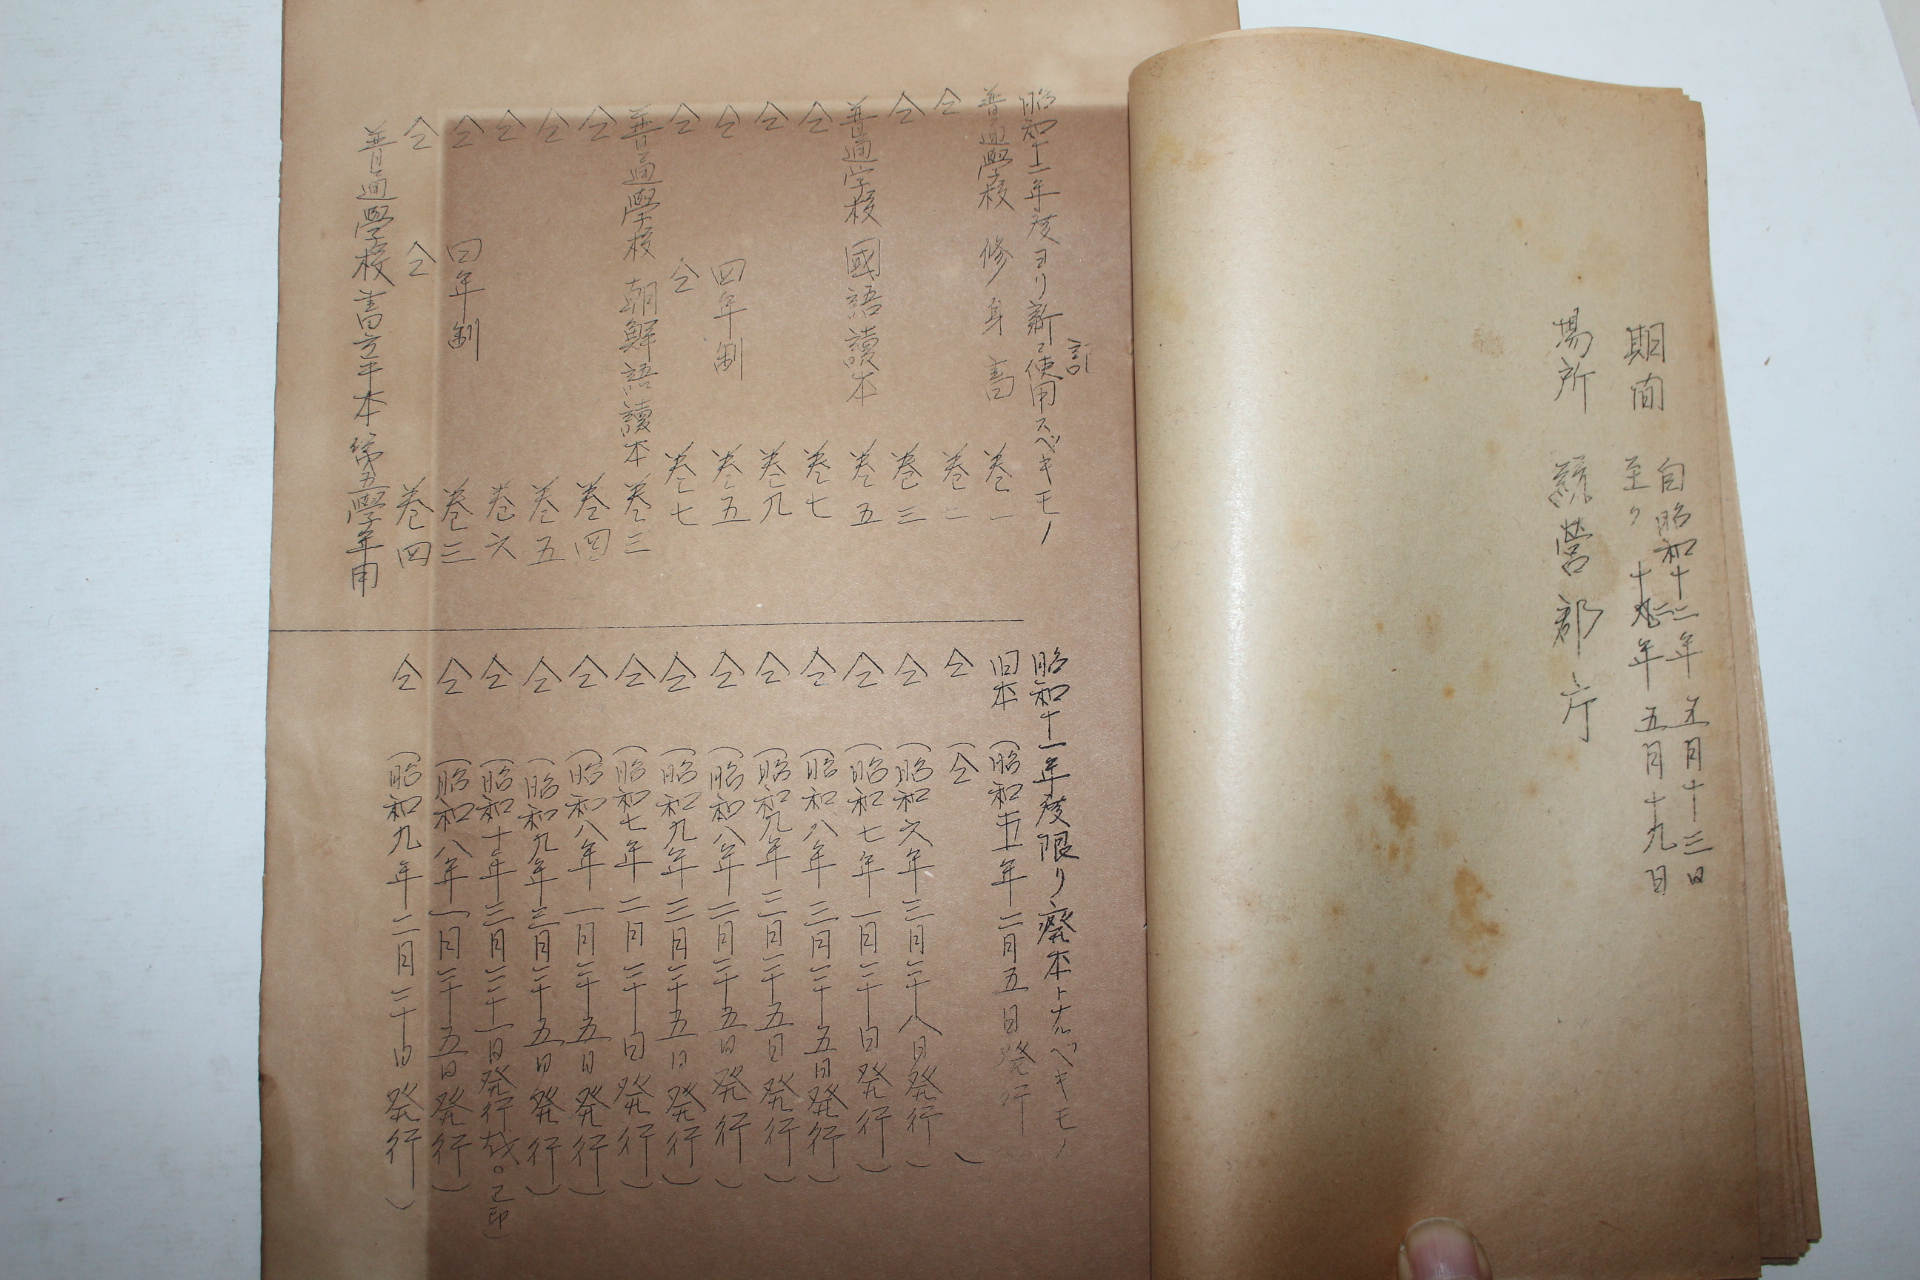 期間 自昭和十二年五月十三日
至〃十二年五月十九日
場所 諺營郡庁
計
昭和十一年度ヨリ新ニ使用スベキモノ
普通學校 修身書 巻一
仝 巻二
仝 巻三
普通学校 國語讀本 巻五
仝 巻七
仝 巻九
仝 四年制 巻五
仝 仝 巻七
普通學校 朝鮮語讀本 巻三
仝 巻四
仝 巻五
仝 巻六
仝 四年制 巻三
仝 仝 巻四
普通學校 書方手本 第五學年用
昭和十一年度限リ廃本トナルベキモノ
旧本 (昭和五年二月五日発行
仝 (仝 )
仝 (昭和六年三月二十八日発行)
仝 (昭和七年一月二十日発行)
仝 (昭和八年三月二十五日発行)
仝 (昭和九年三月二十五日発行)
仝 (昭和八年二月二十五日発行)
仝 (昭和九年三月二十五日発行)
仝 (昭和七年二月二十日発行)
仝 (昭和八年一月二十五日発行)
仝 (昭和九年三月二十五日発行)
仝 (昭和十年三月三十一日発行
仝 (昭和八年一月二十五日発行)
仝 (昭和九年二月二十日発行)